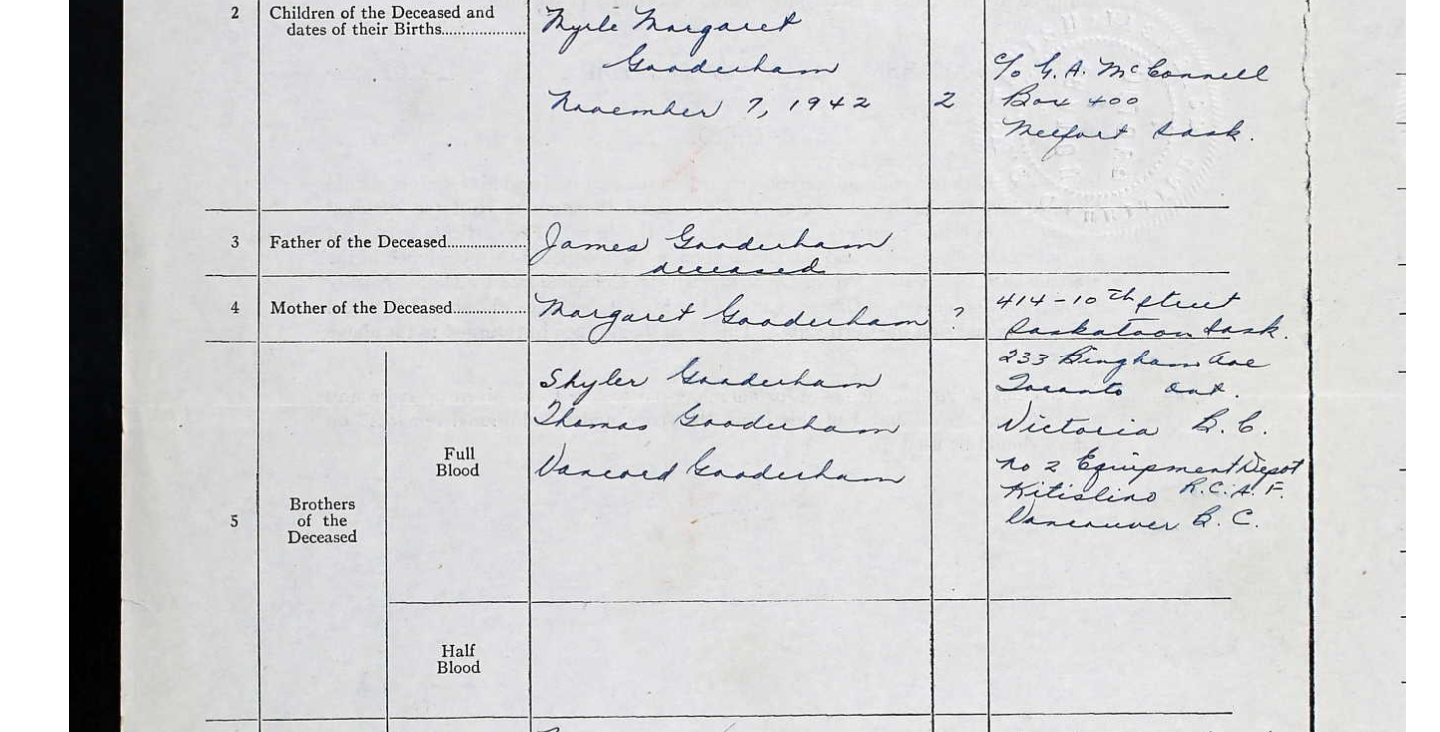 2 Children of the Deceased and
dates of their Births....................
Myrle Margaret
Gooderham
November 7, 1942 2
c/o G. A. McConnell
Box 400
Melfort Sask.
3 Father of the Deceased.................
James Gooderham
deceased
4 Mother of the Deceased................
Margaret Gooderham ?
414-10th Street
Saskatoon Sask.
5 Brothers
of the
Deceased
Full
Blood
Skyler Gooderham
233 Bingham Ave
Toronto Ont.
Thomas Gooderham
Victoria B.C.
Gooderham
No 2 Equipment Depot
Kitislino R.C.A.F.
Vancouver B.C.
Half
Blood